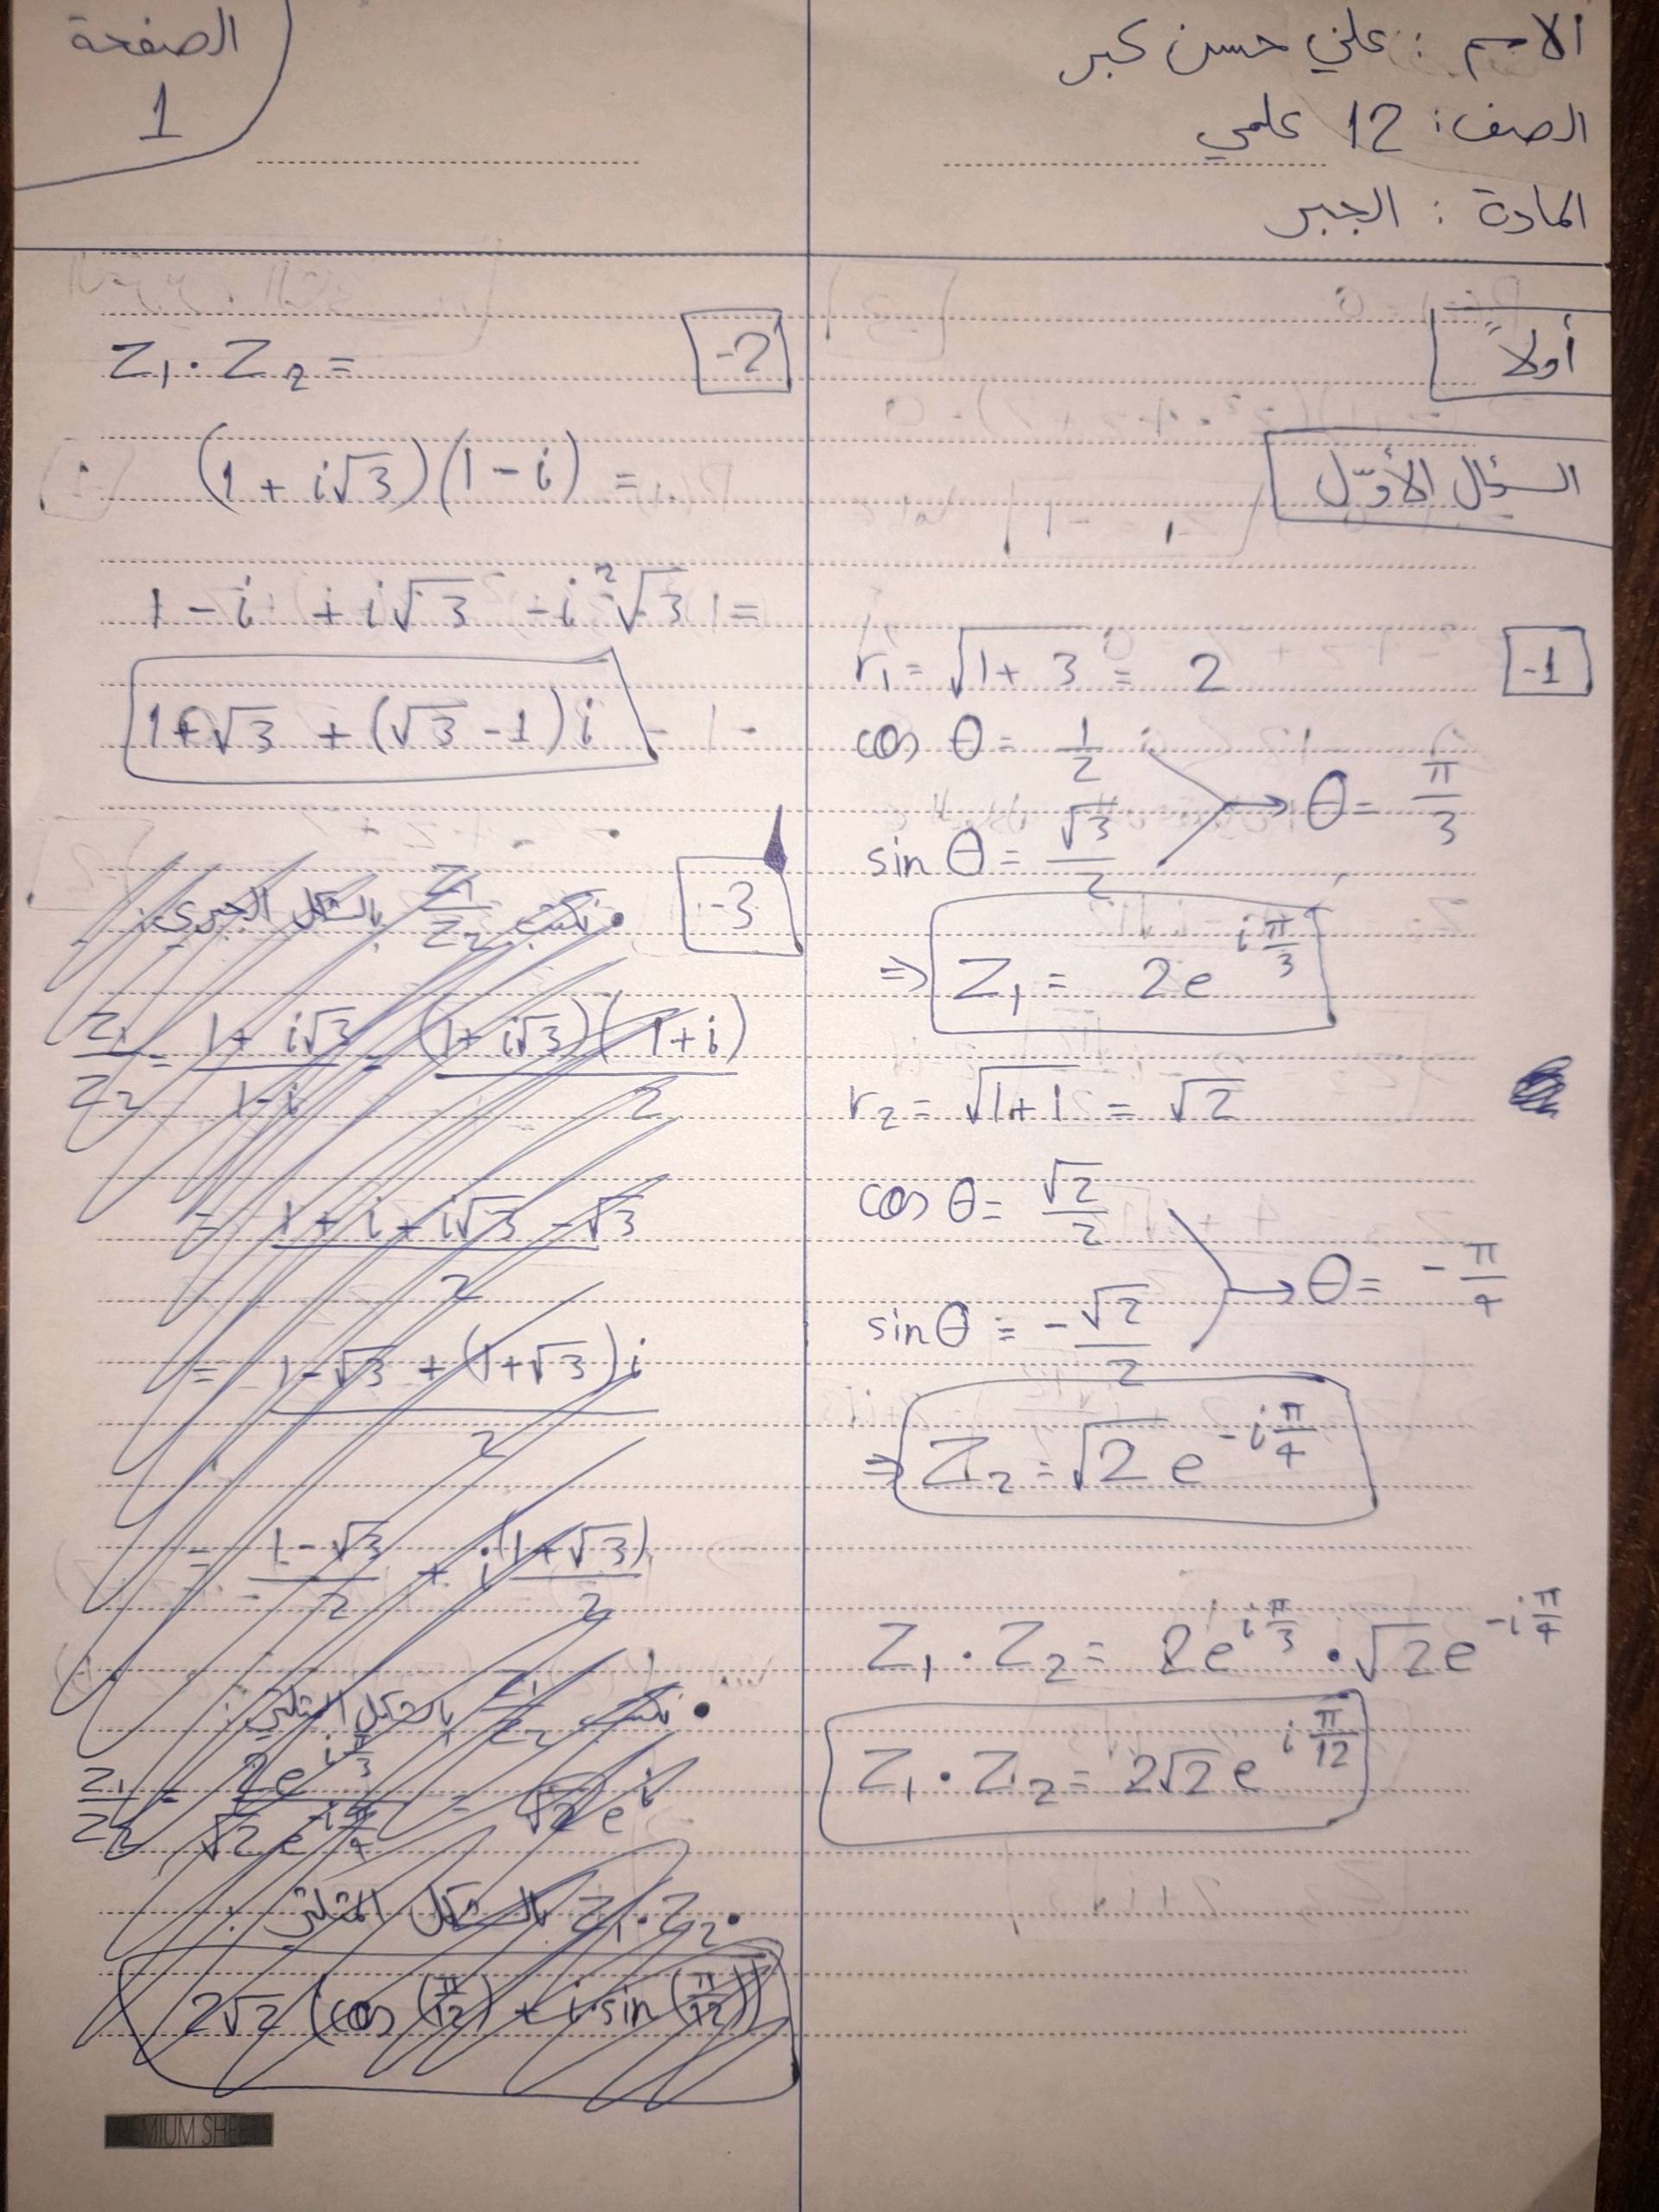 الاسم : علي حسن كبر
الصف : 12 علمي
المادة : الجبر
الصفحة
1
أولاً
السؤال الأوّل
-1
r₁ = √(1 + 3) = 2
cos θ = 1/2
sin θ = √3/2
→ θ = π/3
⇒ Z₁ = 2e^(i π/3)
r₂ = √(1+1) = √2
cos θ = √2/2
sin θ = -√2/2
→ θ = -π/4
⇒ Z₂ = √2 e^(-i π/4)
Z₁ . Z₂ = 2e^(i π/3) . √2e^(-i π/4)
Z₁ . Z₂ = 2√2 e^(i π/12)
-2
Z₁ . Z₂ =
(1 + i√3)(1 - i) =
1 - i + i√3 - i²√3 =
1+√3 + (√3 - 1)i
-3
• نكتب Z₁/Z₂ بالشكل الجبري :
Z₁/Z₂ = (1 + i√3)/(1-i) = (1+ i√3)(1+i)/2
= (1 + i + i√3 - √3)/2
= (1-√3 + (1+√3)i)/2
= (1-√3)/2 + i (1+√3)/2
• نكتب Z₁/Z₂ بالشكل المثلثي :
Z₁/Z₂ = 2e^(i π/3)/(√2 e^(-i π/4)) = √2 e^i
• Z₁.Z₂ بالشكل المثلثي :
2√2 (cos (π/12) + i sin (π/12))